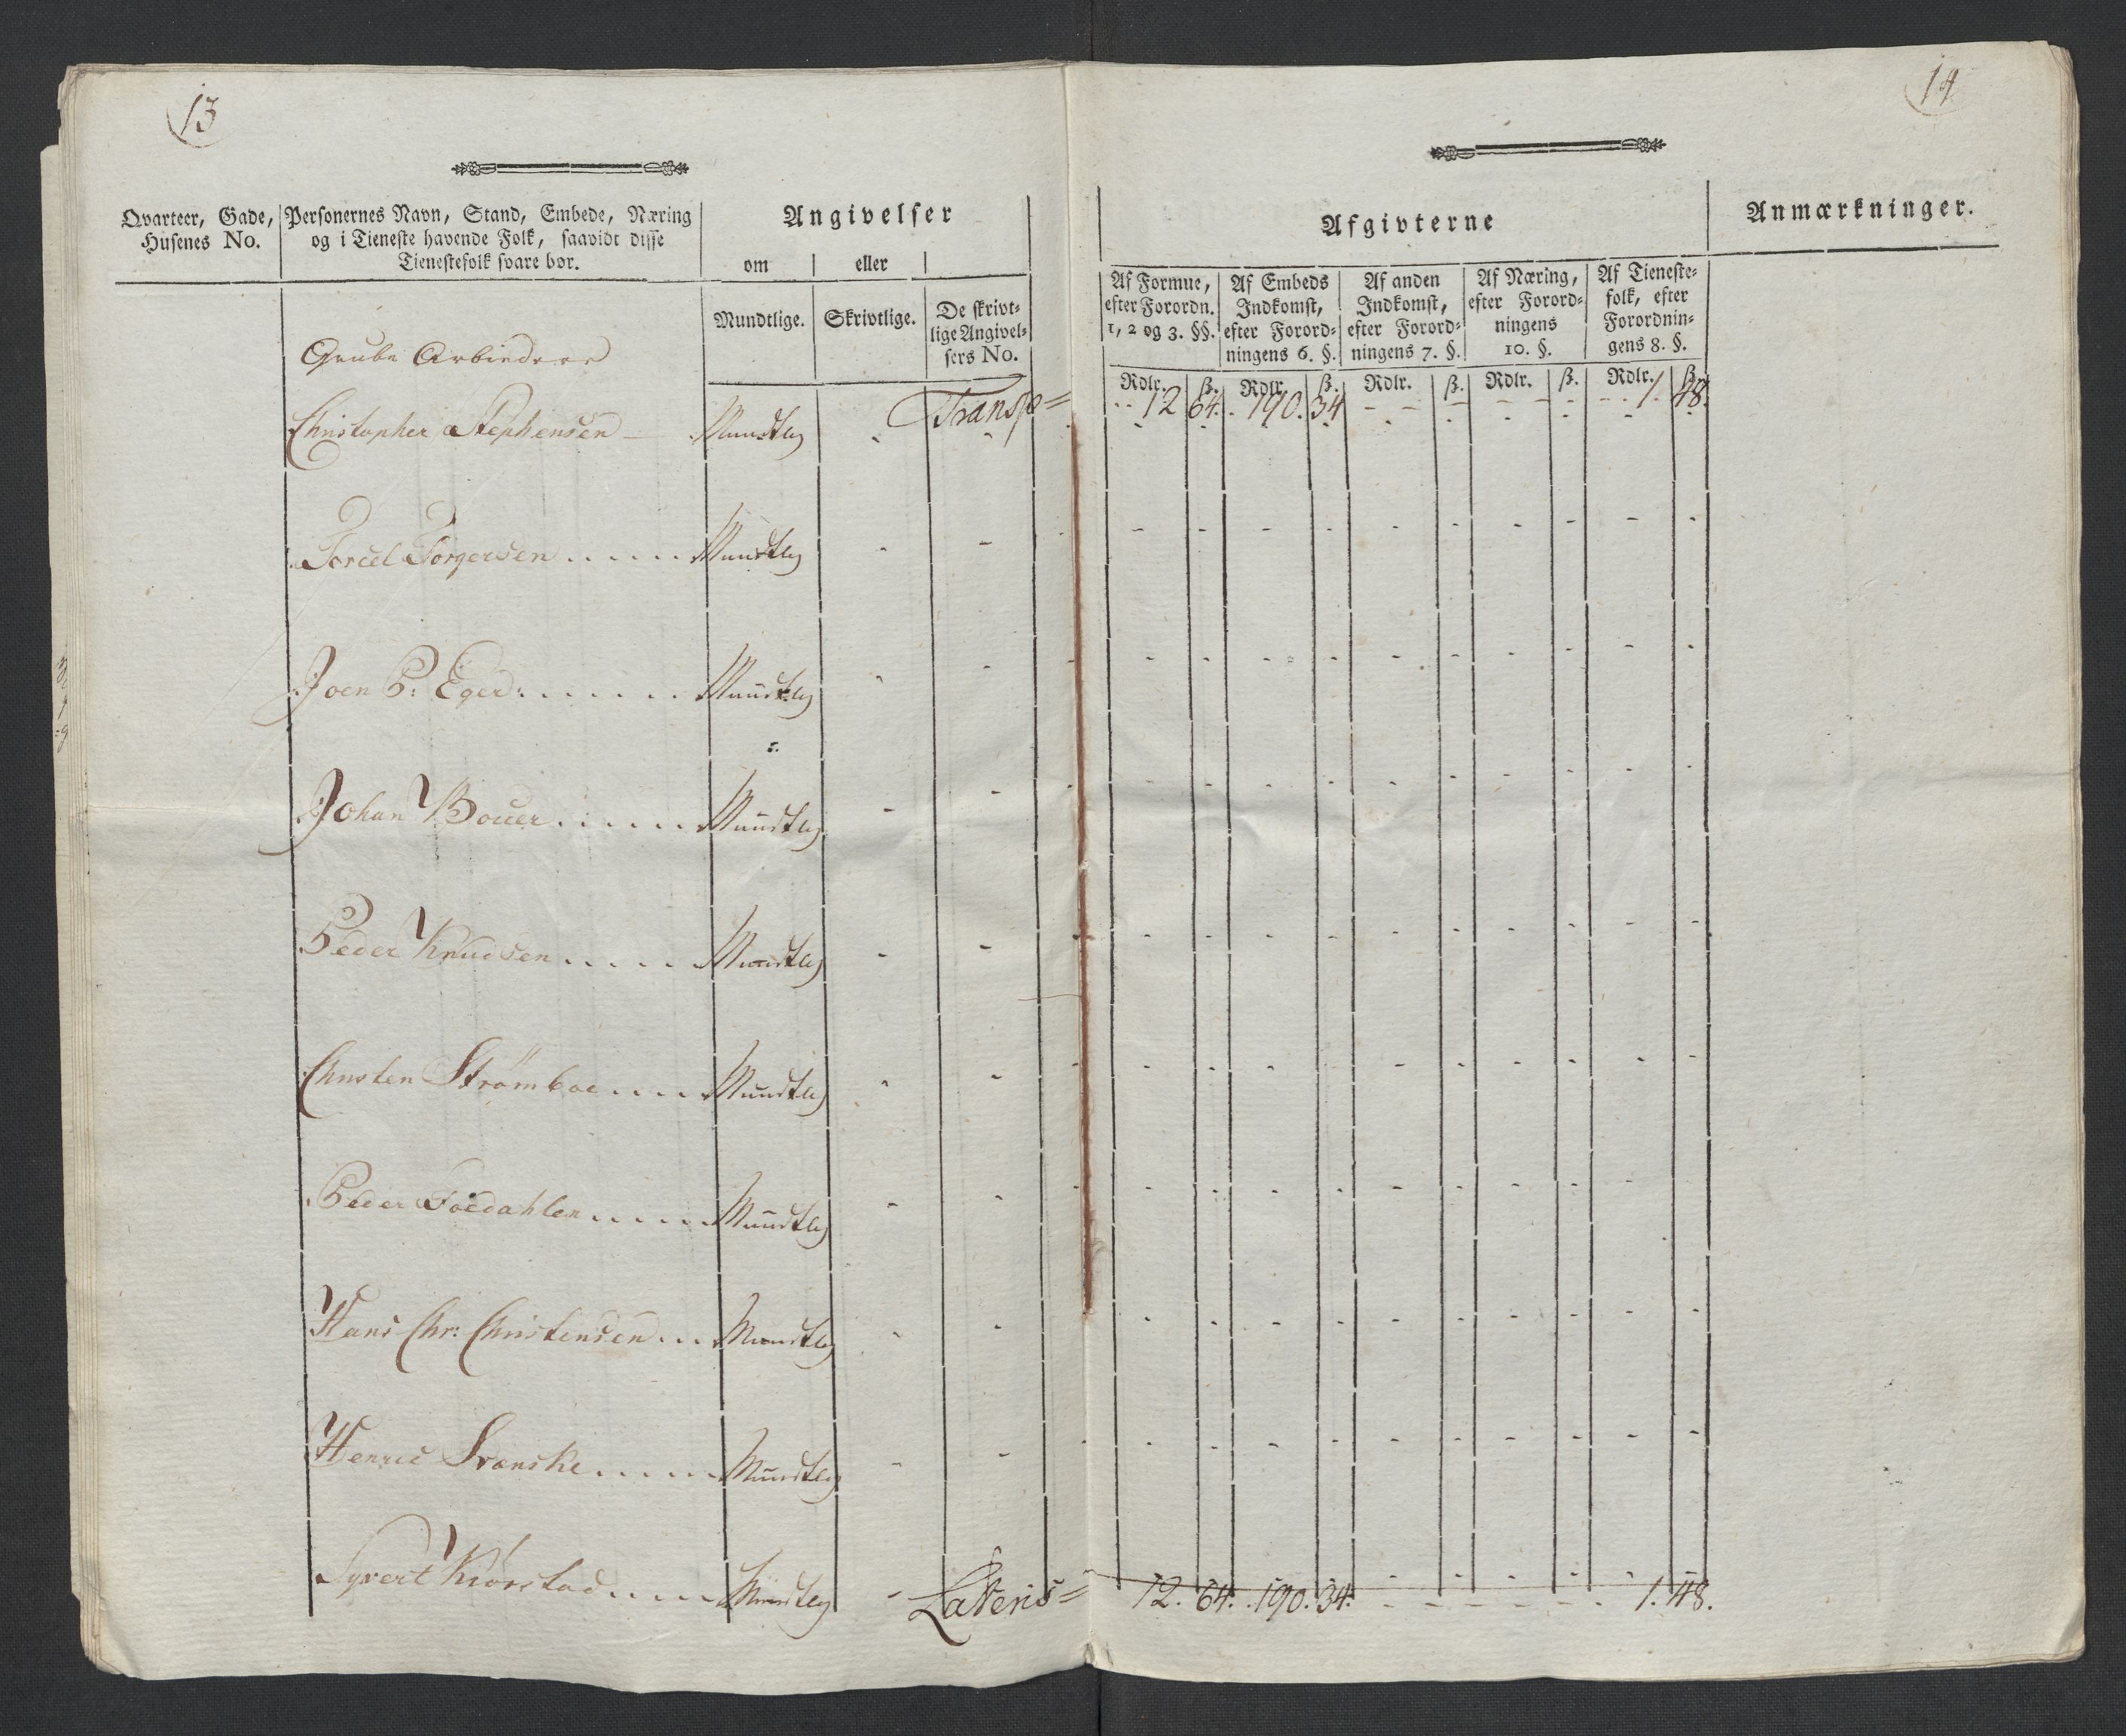 13
Qvarteer, Gade, Husenes No.
Personernes Navn, Stand, Embede, Næring
og i Tieneste havende Folk, saavidt disse
Tienestefolk svare bør.
Angivelser
om eller
Mundtlige. Skrivtlige. De skrivt-
lige Angivel-
sers No.
Grube Arbiedere
Transp=
Christopher Stephensen — Mundtlig - -
Torcel Torgersen ..... Mundtlig - -
Joen P: Eger: ...... Mundtlig - -
Johan Bouer ...... Mundtlig - -
Peder Knudsen ..... Mundtlig - -
Christen Strømboe .... Mundtlig - -
Peder Foedahlen ..... Mundtlig - -
Hans Chr: Christensen ... Mundtlig - -
Henric Svenske ..... Mundtlig - -
Syvert Kiørstad ..... Mundtlig -
Lateris=
14
Afgivterne
Anmærkninger.
Af Formue,
efter Forordn.
1, 2 og 3. §§.
Af Embeds
Indkomst,
efter Forord-
ningens 6. §.
Af anden
Indkomst,
efter Forord-
ningens 7. §.
Af Næring,
efter Forord-
ningens
10. §.
Af Tieneste-
folk, efter
Forordnin-
gens 8. §.
Rdlr. ß. Rdlr. ß. Rdlr. ß. Rdlr. ß. Rdlr. ß.
12 64. 190. 34 - - - - - 1. 48.
- - - - - - - - - -
- - - - - - - - - -
- - - - - - - - - -
- - - - - - - - - -
- - - - - - - - - -
- - - - - - - - - -
- - - - - - - - - -
- - - - - - - - - -
- - - - - - - - - -
- - - - - -
12. 64. 190. 34. - - - - - - 1. 48.